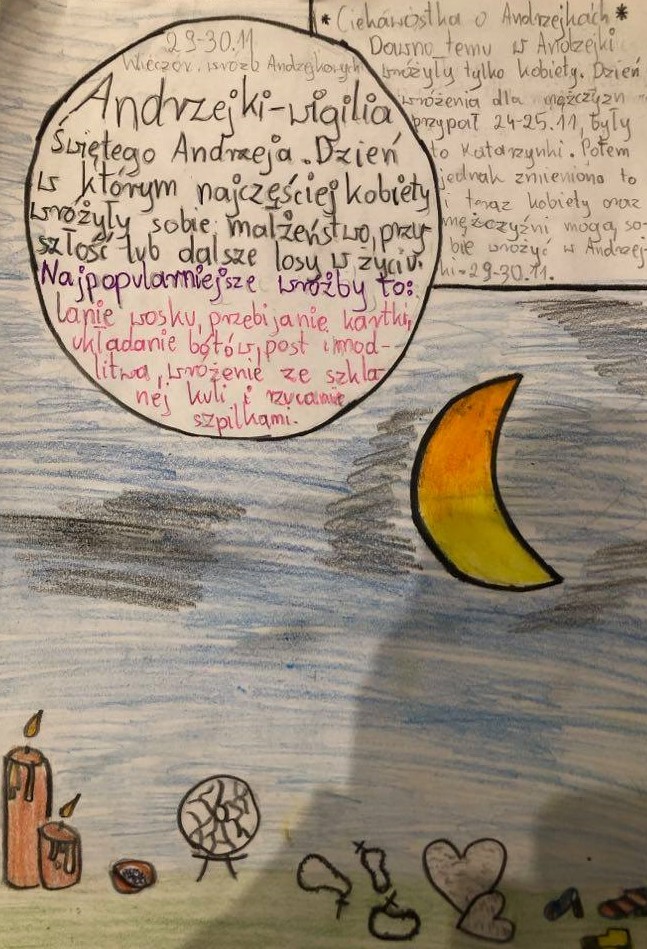 29-30.11
Wieczór wróżb Andrzejkowych
Andrzejki-wigilia
Świętego Andrzeja. Dzień
w którym najczęściej kobiety
wróżyły sobie małżeństwo, przy-
szłość lub dalsze losy w życiu.
Najpopularniejsze wróżby to:
Lanie wosku, przebijanie kartki,
układanie botów, post i mod-
litwa, wróżenie ze szkla-
nej kuli i rzucanie
szpilkami.
* Ciekawostka o Andrzejkach *
Dawno temu w Andrzejki
wróżyły tylko kobiety. Dzień
wróżenia dla mężczyzn
przypał 24-25.11, były
to Katarzynki. Potem
jednak zmieniono to
i teraz kobiety oraz
mężczyźni mogą so-
bie wróżyć w Andrzej-
ki-29-30.11.